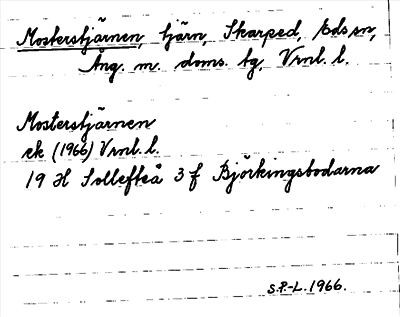 Mosterstjärnen, tjärn, Skarped, Eds sn,
Ång. m. doms. tg, Vrnl. l.
Mosterstjärnen
ek (1966) Vrnl. l.
19 H Sollefteå 3 f Björkingsbodarna
S.P.-L. 1966.